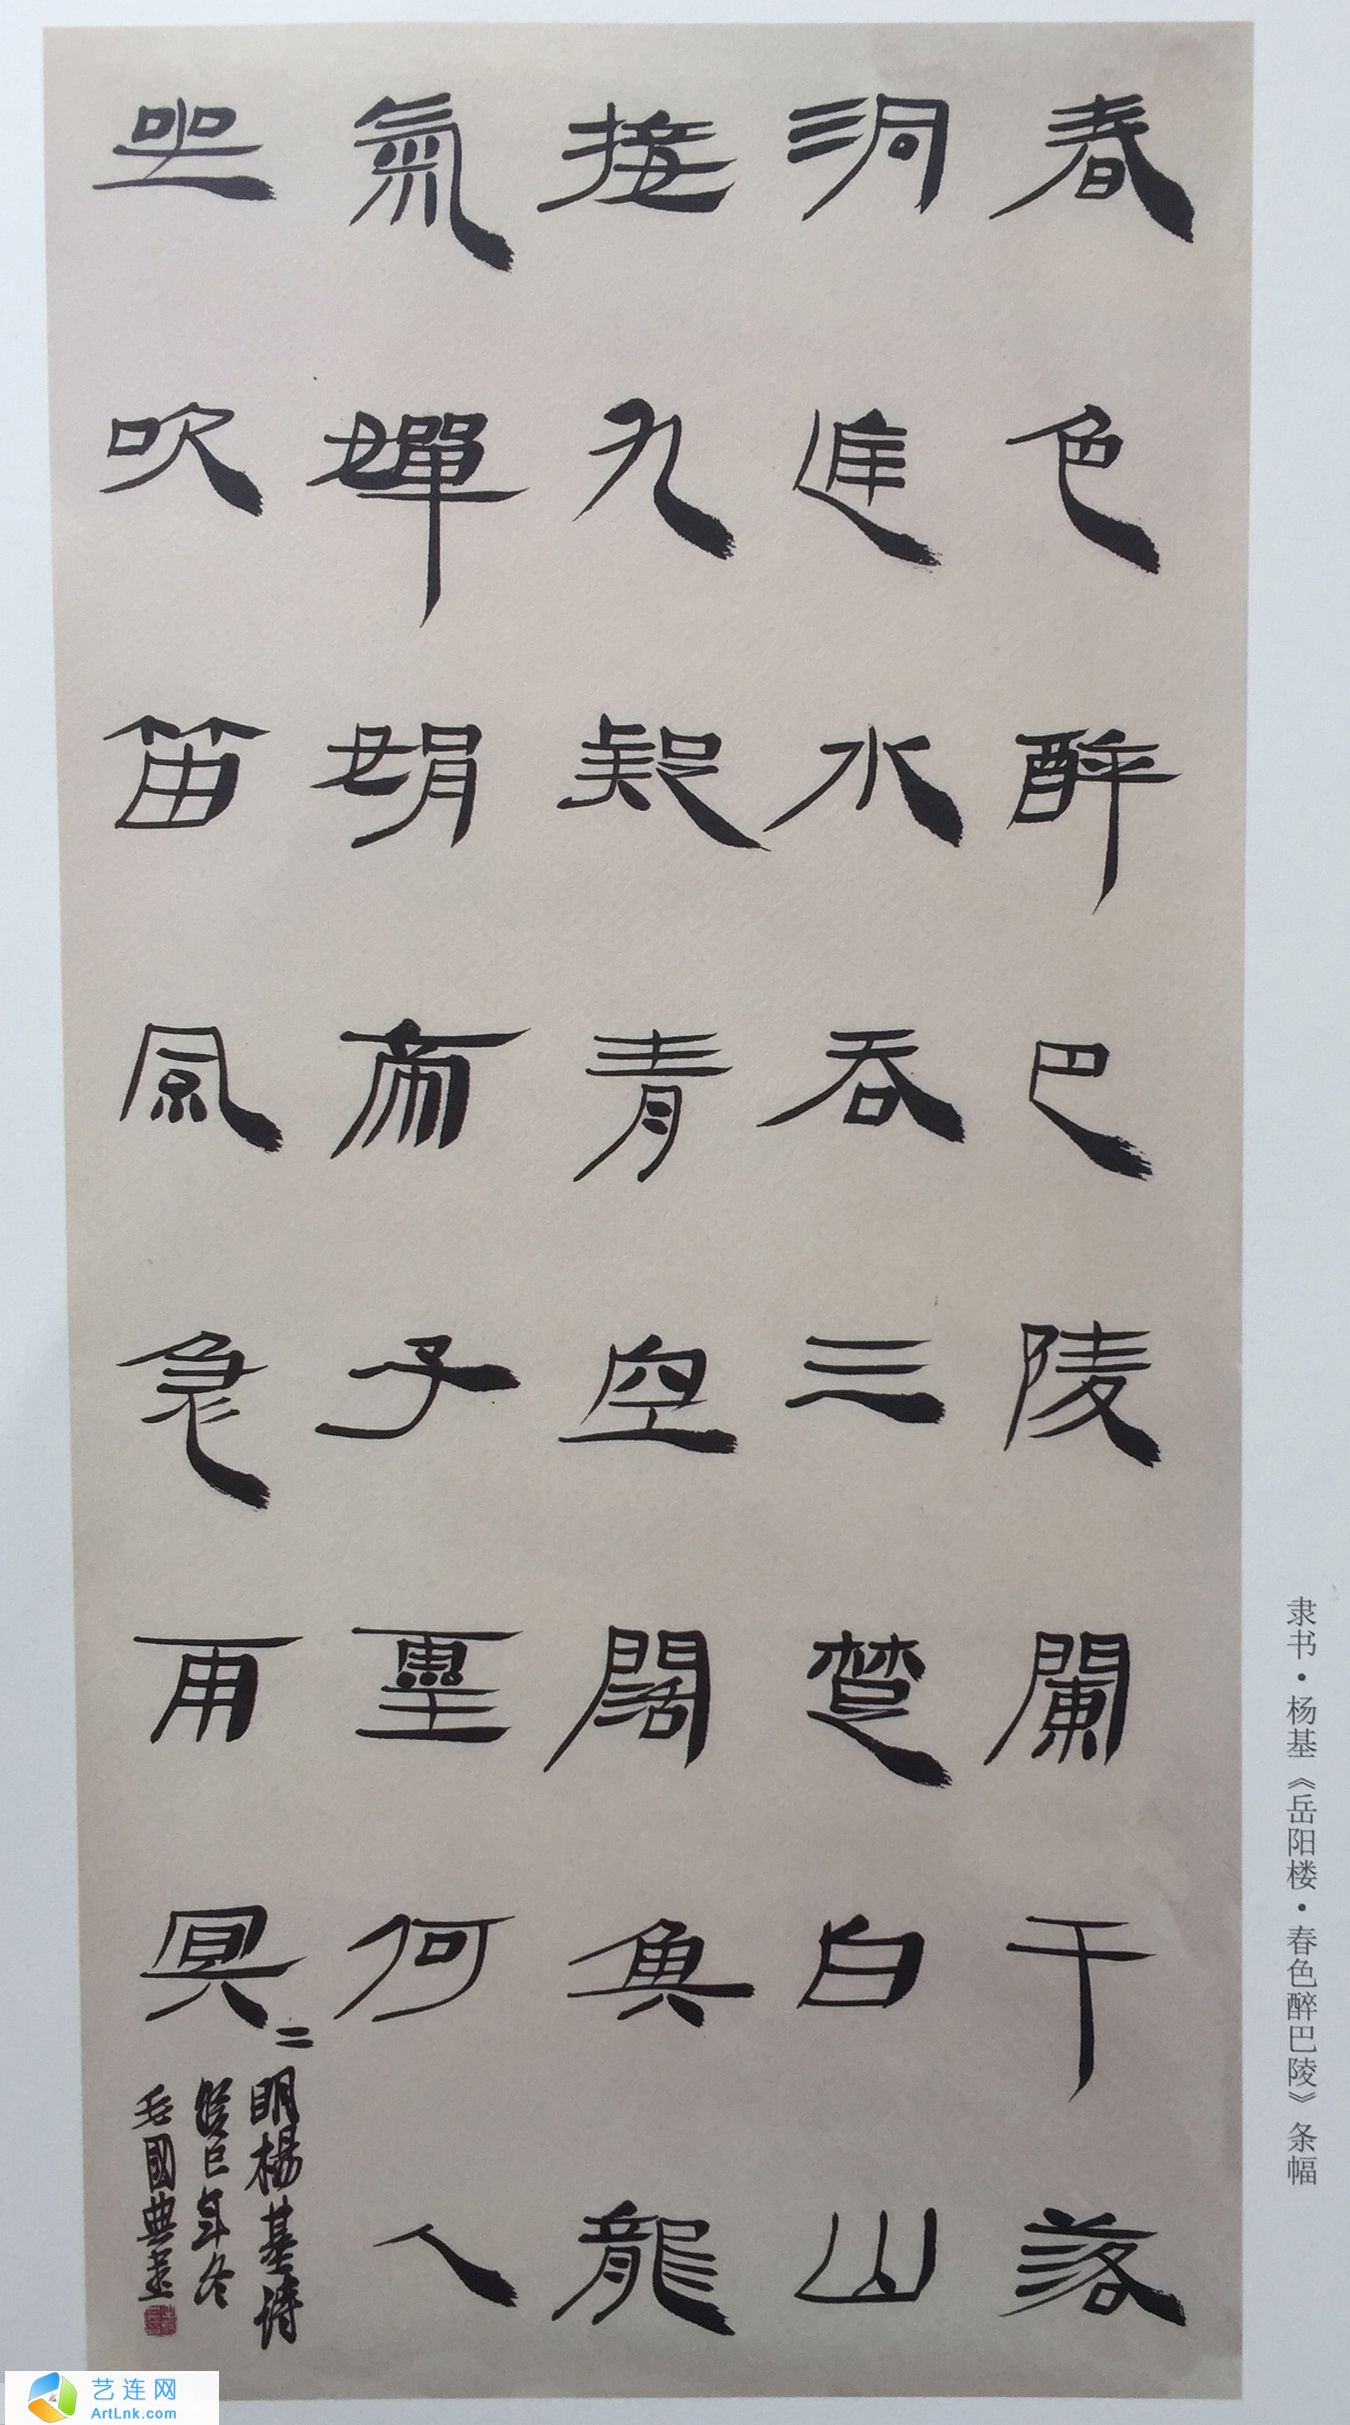 春色醉巴陵闌干落
洞庭水吞三楚白山
接九疑青空闊魚龍
氣嬋娟帝子靈何人
坐吹笛風急雨冥二
明楊基詩
癸巳年冬
毛國典書
隶书·杨基《岳阳楼·春色醉巴陵》条幅
艺连网
ArtLnk.com